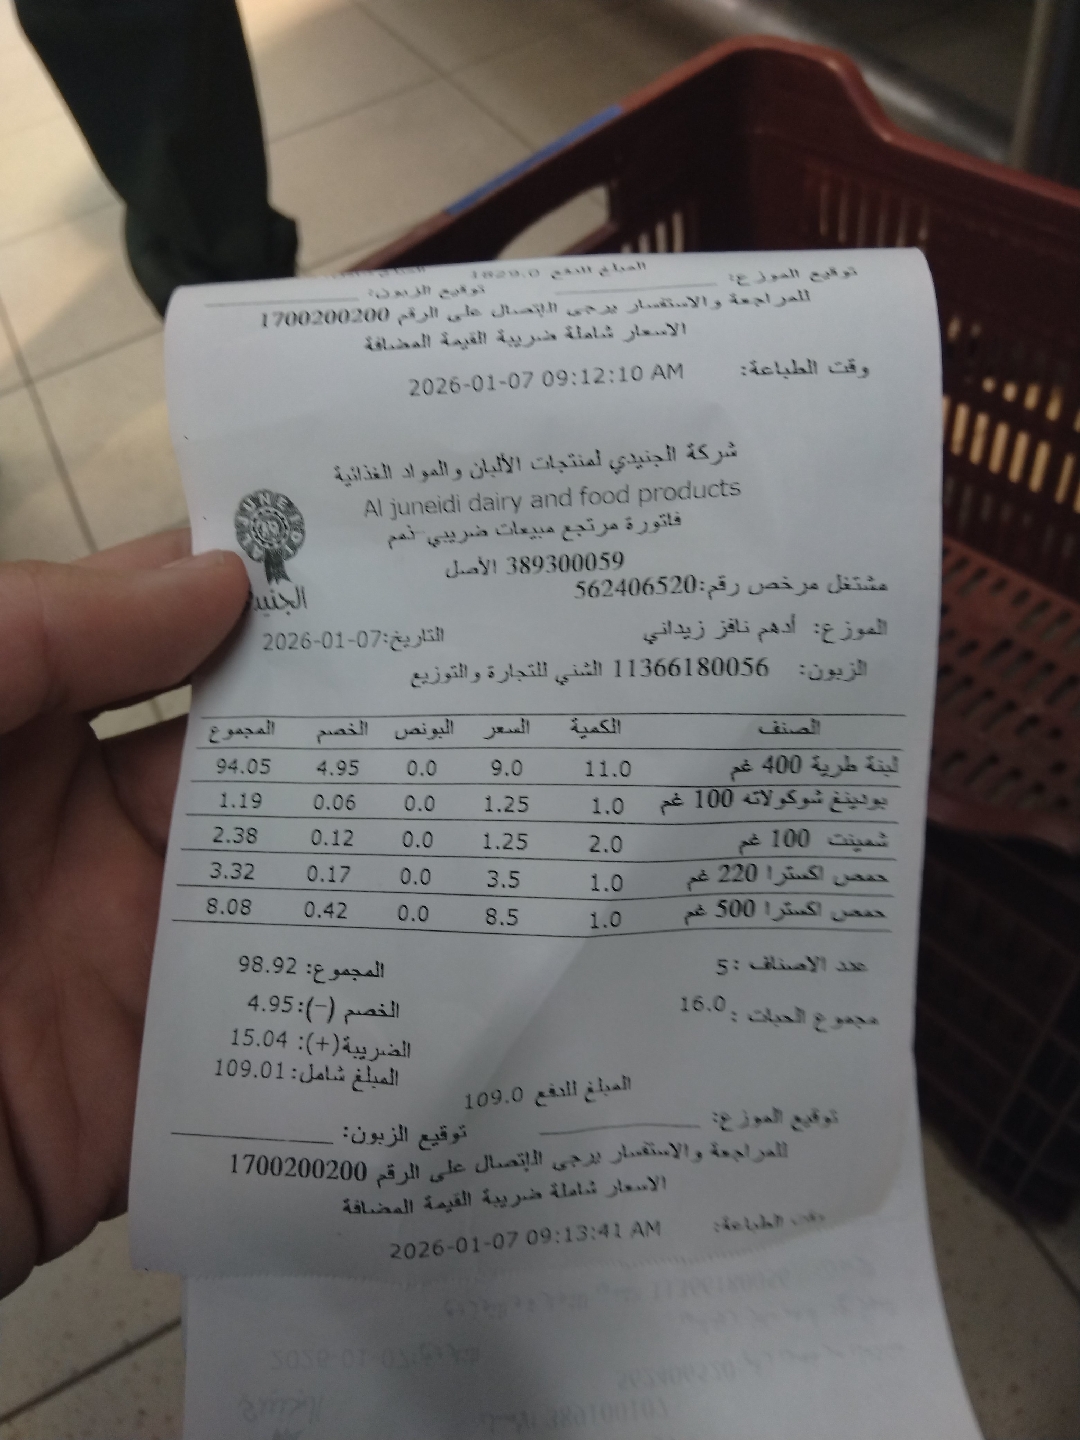 المبلغ للدفع 1829.0
توقيع الموزع: توقيع الزبون:
للمراجعة والاستفسار يرجى الإتصال على الرقم 1700200200
الاسعار شاملة ضريبة القيمة المضافة
وقت الطباعة: 2026-01-07 09:12:10 AM
شركة الجنيدي لمنتجات الألبان والمواد الغذائية
Al juneidi dairy and food products
فاتورة مرتجع مبيعات ضريبي-ذمم
389300059 الأصل
مشتغل مرخص رقم:562406520
الجنيد
الموزع: أدهم نافز زيداني التاريخ:2026-01-07
الزبون: 11366180056 الشني للتجارة والتوزيع
الصنف الكمية السعر البونص الخصم المجموع
لبنة طرية 400 غم 11.0 9.0 0.0 4.95 94.05
بودينغ شوكولاته 100 غم 1.0 1.25 0.0 0.06 1.19
شمينت 100 غم 2.0 1.25 0.0 0.12 2.38
حمص اكسترا 220 غم 1.0 3.5 0.0 0.17 3.32
حمص اكسترا 500 غم 1.0 8.5 0.0 0.42 8.08
عدد الاصناف :5 المجموع: 98.92
مجموع الحبات :16.0 الخصم (-):4.95
الضريبة(+): 15.04
المبلغ شامل: 109.01
المبلغ للدفع 109.0
توقيع الموزع: توقيع الزبون:
للمراجعة والاستفسار يرجى الإتصال على الرقم 1700200200
الاسعار شاملة ضريبة القيمة المضافة
وقت الطباعة: 2026-01-07 09:13:41 AM